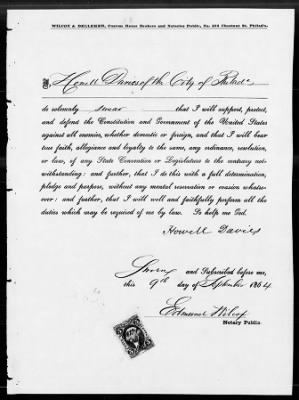 WILCOX & DELLEKER, Custom House Brokers and Notaries Public, No. 204 Chestnut St. Philad'a.
I, Howell Davies of the City of Philada
do solemnly swear that I will support, protect,
and defend the Constitution and Government of the United States
against all enemies, whether domestic or foreign, and that I will bear
true faith, allegiance and loyalty to the same, any ordinance, resolution,
or law, of any State Convention or Legislature to the contrary not-
withstanding: and further, that I do this with a full determination,
pledge and purpose, without any mental reservation or evasion whatso-
ever: and further, that I will well and faithfully perform all the
duties which may be required of me by law. So help me God.
Howell Davies
Sworn and Subscribed before me,
this 9th day of September 1864
Edmund Wilcox
Notary Public